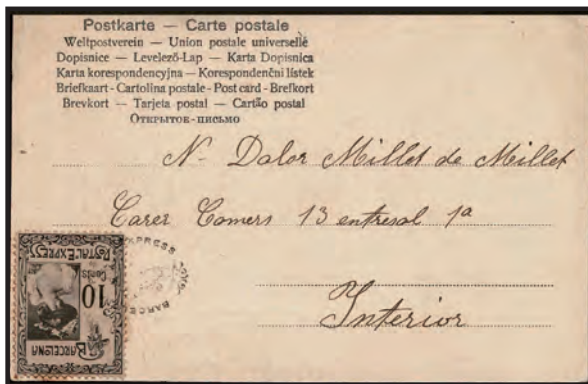 Postkarte — Carte postale
Weltpostverein — Union postale universelle
Dopisnice — Levelező-Lap — Karta Dopisnica
Karta korespondencyjna — Korespondenční lístek
Briefkaart - Cartolina postale - Post card - Brefkort
Brevkort — Tarjeta postal — Cartão postal
Открытое-письмо
N- Dalor Millet de Millet
Carer Comers 13 entresol 1ª
Interior
EXPRESS
BARCE
POSTAL EXPRESS
10
Cents
BARCELONA